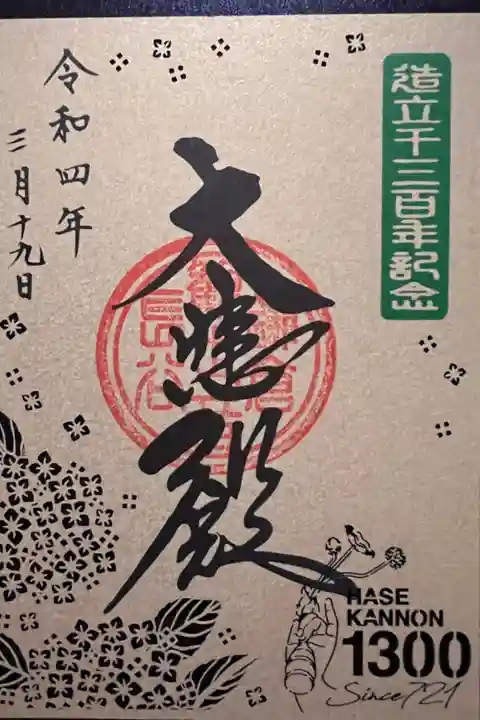 造立千三百年記念
大悲殿
令和四年
三月十九日
HASE
KANNON
1300
Since 721